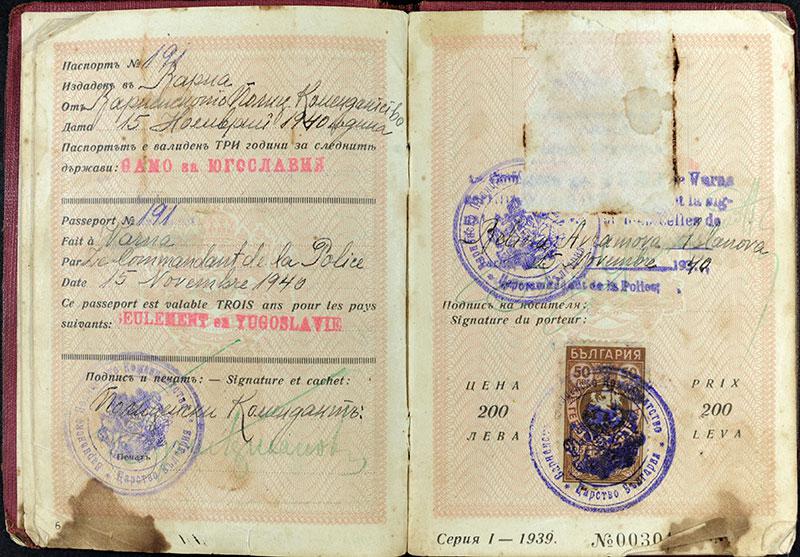 Паспортъ № 191
Издаденъ въ Варна
Отъ Варненското Полиц. Комендантство
Дата 15 Ноемврий 1940 година
Паспортътъ е валиденъ ТРИ години за следнитѣ
държави: САМО за ЮГОСЛАВИЯ
Passeport № 191
Fait à Varna
Par Le Commandant de la Police
Date 15 Novembre 1940
Ce passeport est valable TROIS ans pour les pays
suivants: SEULEMENT en YUGOSLAVIE
Подпись и печатъ: — Signature et cachet:
Полицейски Комендантъ:
Печатъ
Царство България
6
de Varna
la sig-
elles de
Novembre 1940
Commandant de la Police:
Подпись на носителя:
Signature du porteur:
БЪЛГАРИЯ
50 50
ЦЕНА
200
ЛЕВА
PRIX
200
LEVA
Царство България
Серия I — 1939.